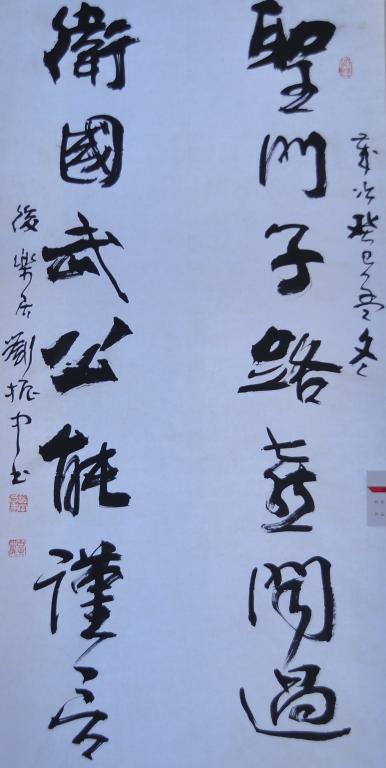 聖門子路喜聞過
歲次癸巳孟冬
衛國武公能謹言
後樂居劉振中書